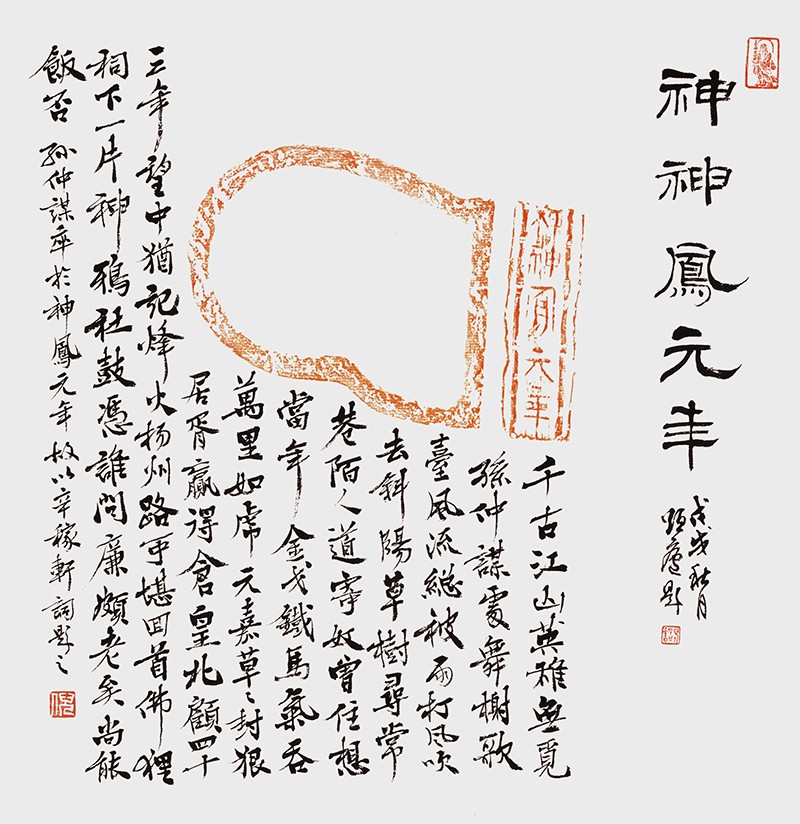 神神鳳元年
戊戌秋月
題
神神鳳元年
千古江山英雄無覓
孫仲謀處舞榭歌
臺風流總被雨打風吹
去斜陽草樹尋常
巷陌人道寄奴曾住想
當年金戈鐵馬氣吞
萬里如虎元嘉草〻封狼
居胥贏得倉皇北顧四十
三年望中猶記烽火揚州路可堪回首佛狸
祠下一片神鴉社鼓憑誰問廉頗老矣尚能
飯否 孫仲謀卒於神鳳元年 故以辛稼軒詞題之